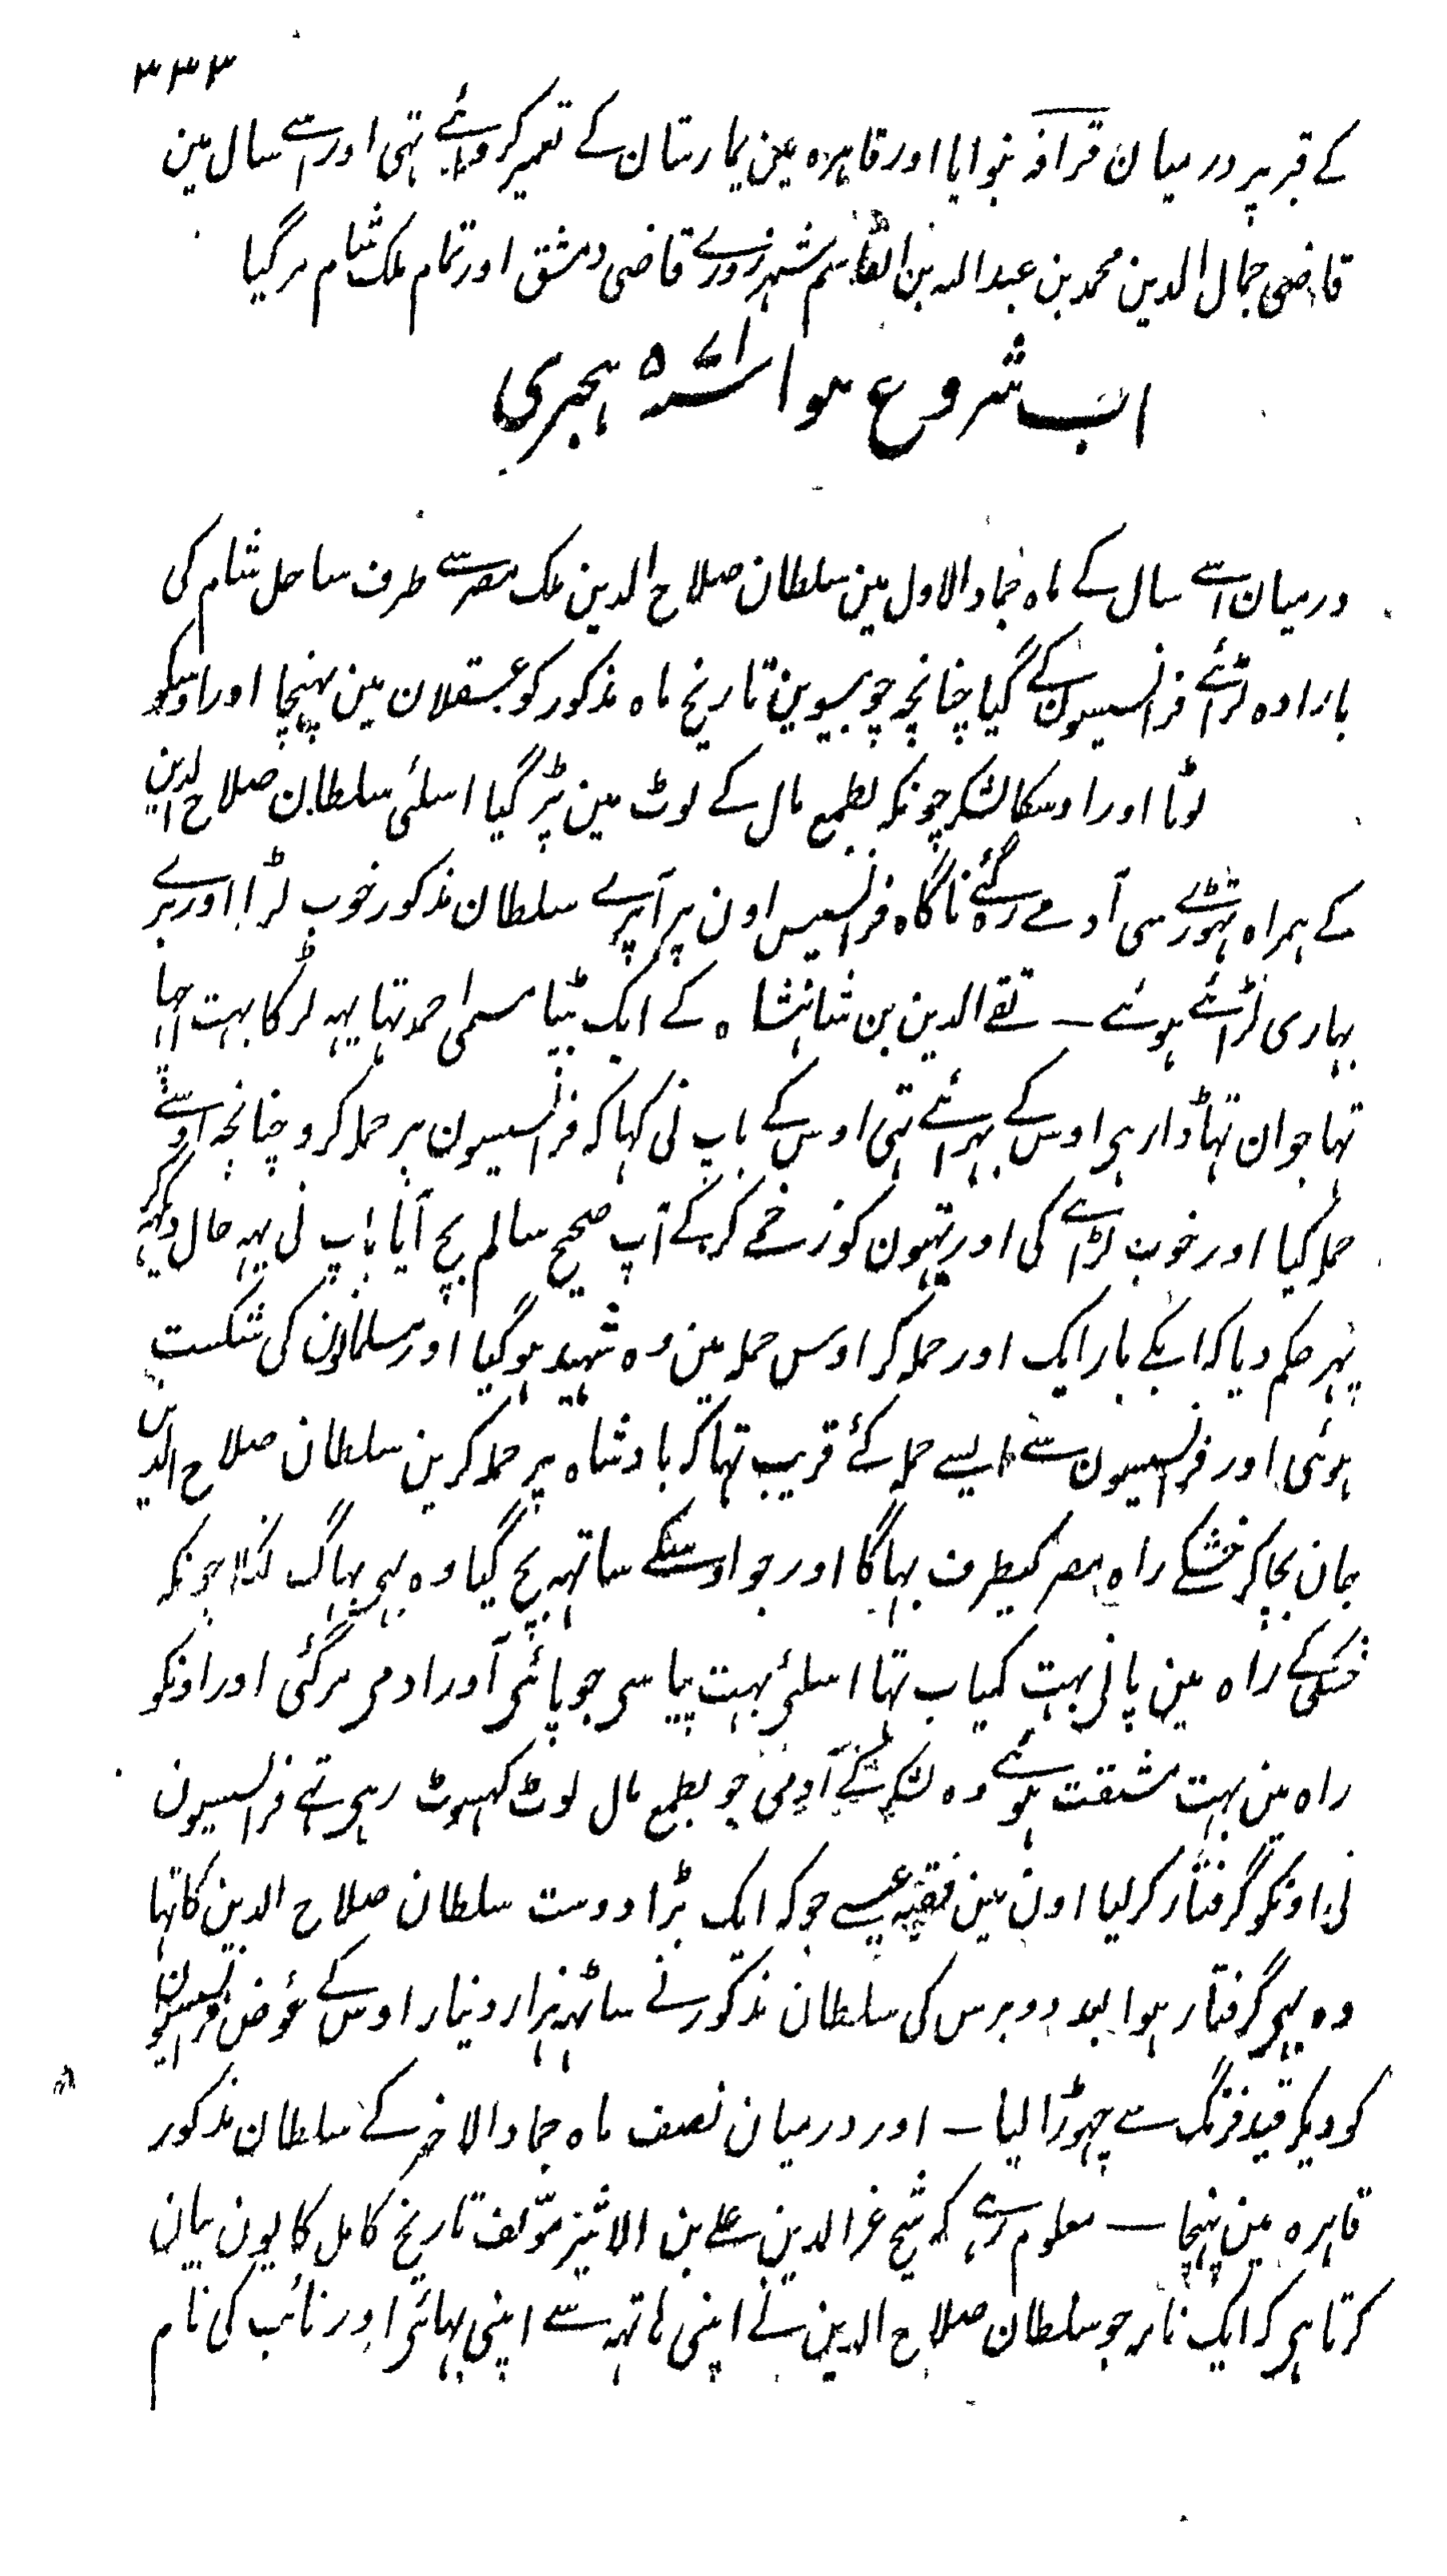 ۳۳۳
کے قبر پر درمیان قرافہ بنوایا اور قاہرہ مین بیمارستان کے تعمیر کروائے تہی اور اسے سال مین
قاضی جمال الدین محمد بن عبداللہ بن القاسم شہرزورے قاضی دمشق اور تمام ملک شام مر گیا
اب شروع ہوا ہجری
درمیان اسے سال کے ماہ جماد الاول مین سلطان صلاح الدین ملک مصر سے طرف ساحل شام کی
بارادہ لڑائے فرانسیسون کے گیا چنانچہ چوبیسوین تاریخ ماہ مذکور کو عسقلان مین پہنچا اور اوسکو
لوٹا اور اوسکا لشکر چونکہ بطمع مال کے لوٹ مین پڑ گیا اسلئی سلطان صلاح الدین
کے ہمراہ تہوڑے سی آدمے رہ گئے ناگاہ فرانسیس اون پر آپرے سلطان مذکور خوب لڑا اور بڑے
بہاری لڑائے ہوئے ــ تقے الدین بن شاہنشاہ کے ایک بیٹا مسمی احمد تہا یہہ لڑکا بہت اچہا
تہا جوان تہا ڈارہی اوس کے بہرائے تہی اوس کے باپ نی کہا کہ فرانسیسون پر حملہ کرو چنانچہ اوسنے
حملہ کیا اور خوب لڑائے کی اور بہتون کو زخمے کرکے آپ صحیح سالم بچ آیا باپ نی یہہ حال دیکہہ کر
پہر حکم دیا کہ ابکے بار ایک اور حملہ کر اوس حملہ مین وہ شہید ہوگیا اور مسلمانون کی شکست
ہوئی اور فرانسیسون سے ایسے حملہ کے قریب تہا کہ بادشاہ پر حملہ کرین سلطان صلاح الدین
جان بچا کر خشکے راہ مصر کیطرف بہاگا اور جو اوسکے ساتہہ بچ گیا وہ بہی بہاگ نکلا چونکہ
خشکی کے راہ مین پانی بہت کمیاب تہا اسلئی بہت پیاسی چوپائی اور ادمی مر گئی اور اونکو
راہ مین بہت مشقت ہوئے وہ لشکر کے آدمی جو بطمع مال لوٹ کہسوٹ رہی تہے فرانسیسون
نی اونکو گرفتار کر لیا اون مین فقیہ عیسے جو کہ ایک بڑا دوست سلطان صلاح الدین کا تہا
وہ بہی گرفتار ہوا بعد دو برس کی سلطان مذکور نے ساٹہہ ہزار دینار اوس کے عوض فرانسیسون
کو دیکر قید فرنگ سے چہوڑا لیا ــ اور درمیان نصف ماہ جماد الاخر کے سلطان مذکور
قاہرہ مین پہنچا ــ معلوم رہے کہ شیخ عزالدین علے بن الاثیر مؤلف تاریخ کامل کا یون بیان
کرتا ہی کہ ایک نامہ جو سلطان صلاح الدین نے اپنی ہاتہہ سے اپنی بہائی اور نائب کی نام